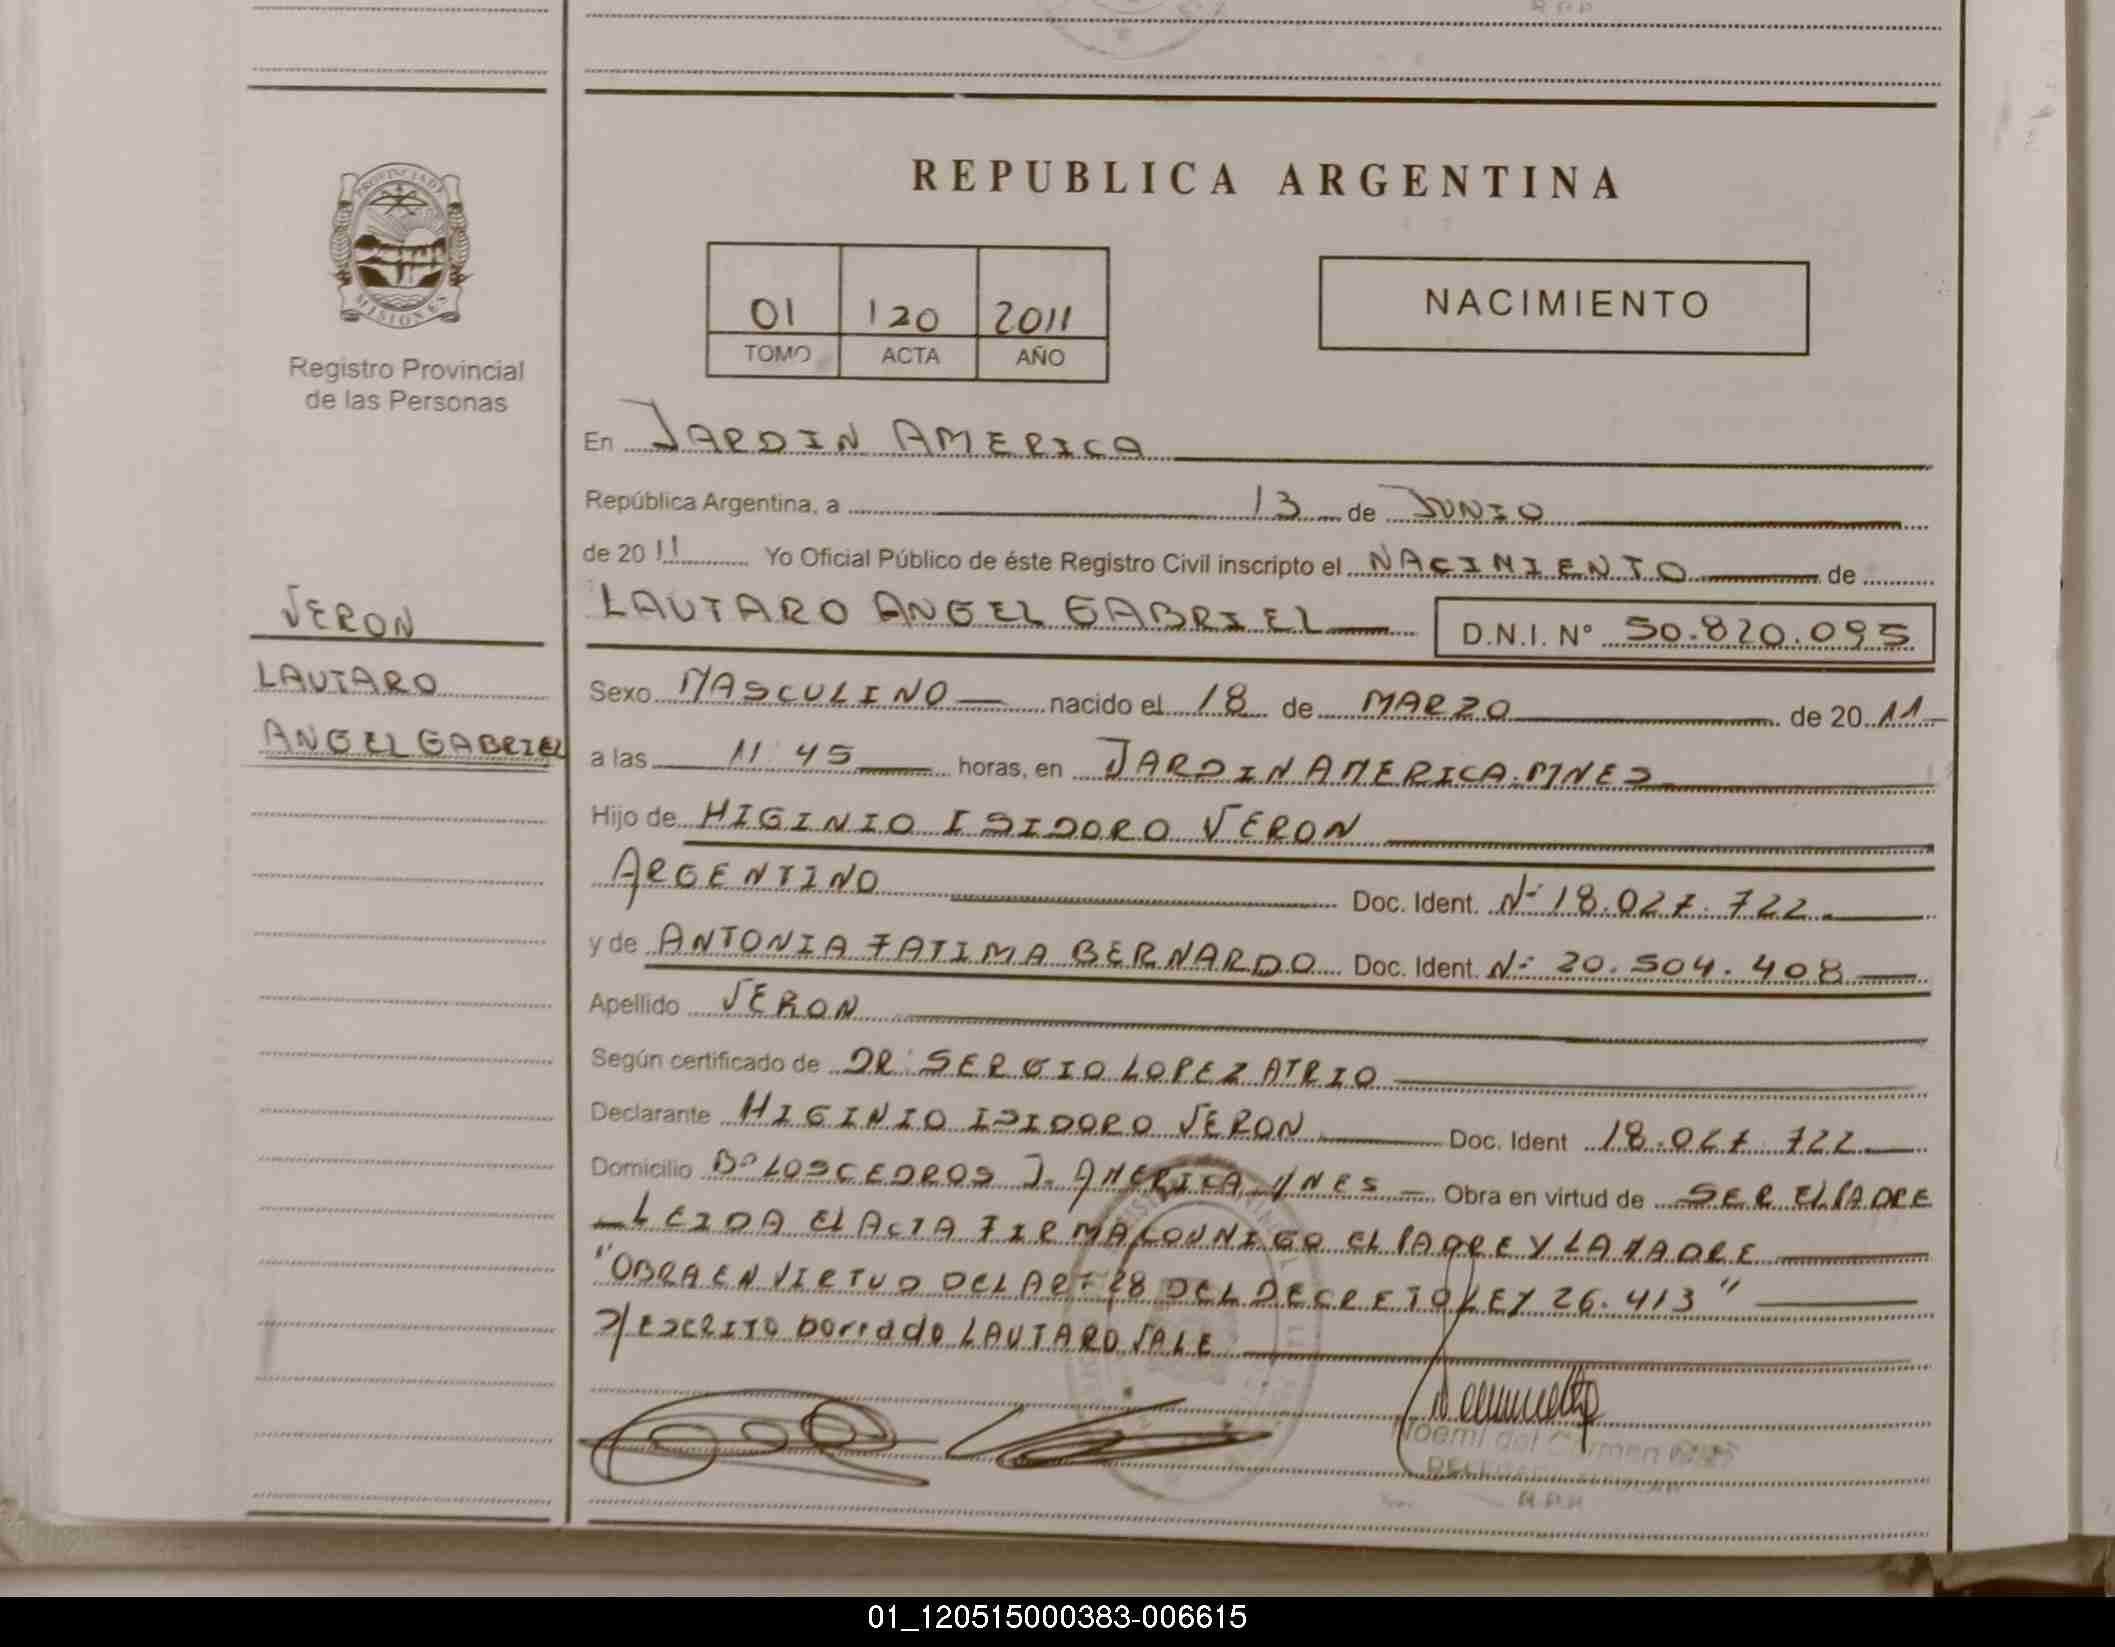 REPUBLICA ARGENTINA
PROVINCIA DE
MISIONES
Registro Provincial
de las Personas
01 120 2011
TOMO ACTA AÑO
NACIMIENTO
En JARDIN AMERICA
República Argentina, a 13 de JUNIO
de 20 11 Yo Oficial Público de éste Registro Civil inscripto el NACIMIENTO de
LAUTARO ANGEL GABRIEL D.N.I. N° 50.820.095
VERON
LAUTARO
ANGEL GABRIEL
Sexo MASCULINO nacido el 18 de MARZO de 20 11
a las 11:45 horas, en JARDIN AMERICA. MNES
Hijo de HIGINIO ISIDORO VERON
ARGENTINO Doc. Ident. N: 18.027.722
y de ANTONIA FATIMA BERNARDO Doc. Ident. N: 20.504.408
Apellido VERON
Según certificado de DR: SERGIO LOPEZ ATRIO
Declarante HIGINIO ISIDORO VERON Doc. Ident 18.027.722
Domicilio B° LOS CEDROS J. AMERICA MNES Obra en virtud de SER EL PADRE
LEIDA EL ACTA FIRMA CONMIGO EL PADRE Y LA MADRE
"OBRA EN VIRTUD DEL ART 28 DEL DECRETO LEY 26.413"
S/ ESCRITO borrado LAUTARO VALE
Noemi del Carmen
R.P.P.
01_120515000383-006615